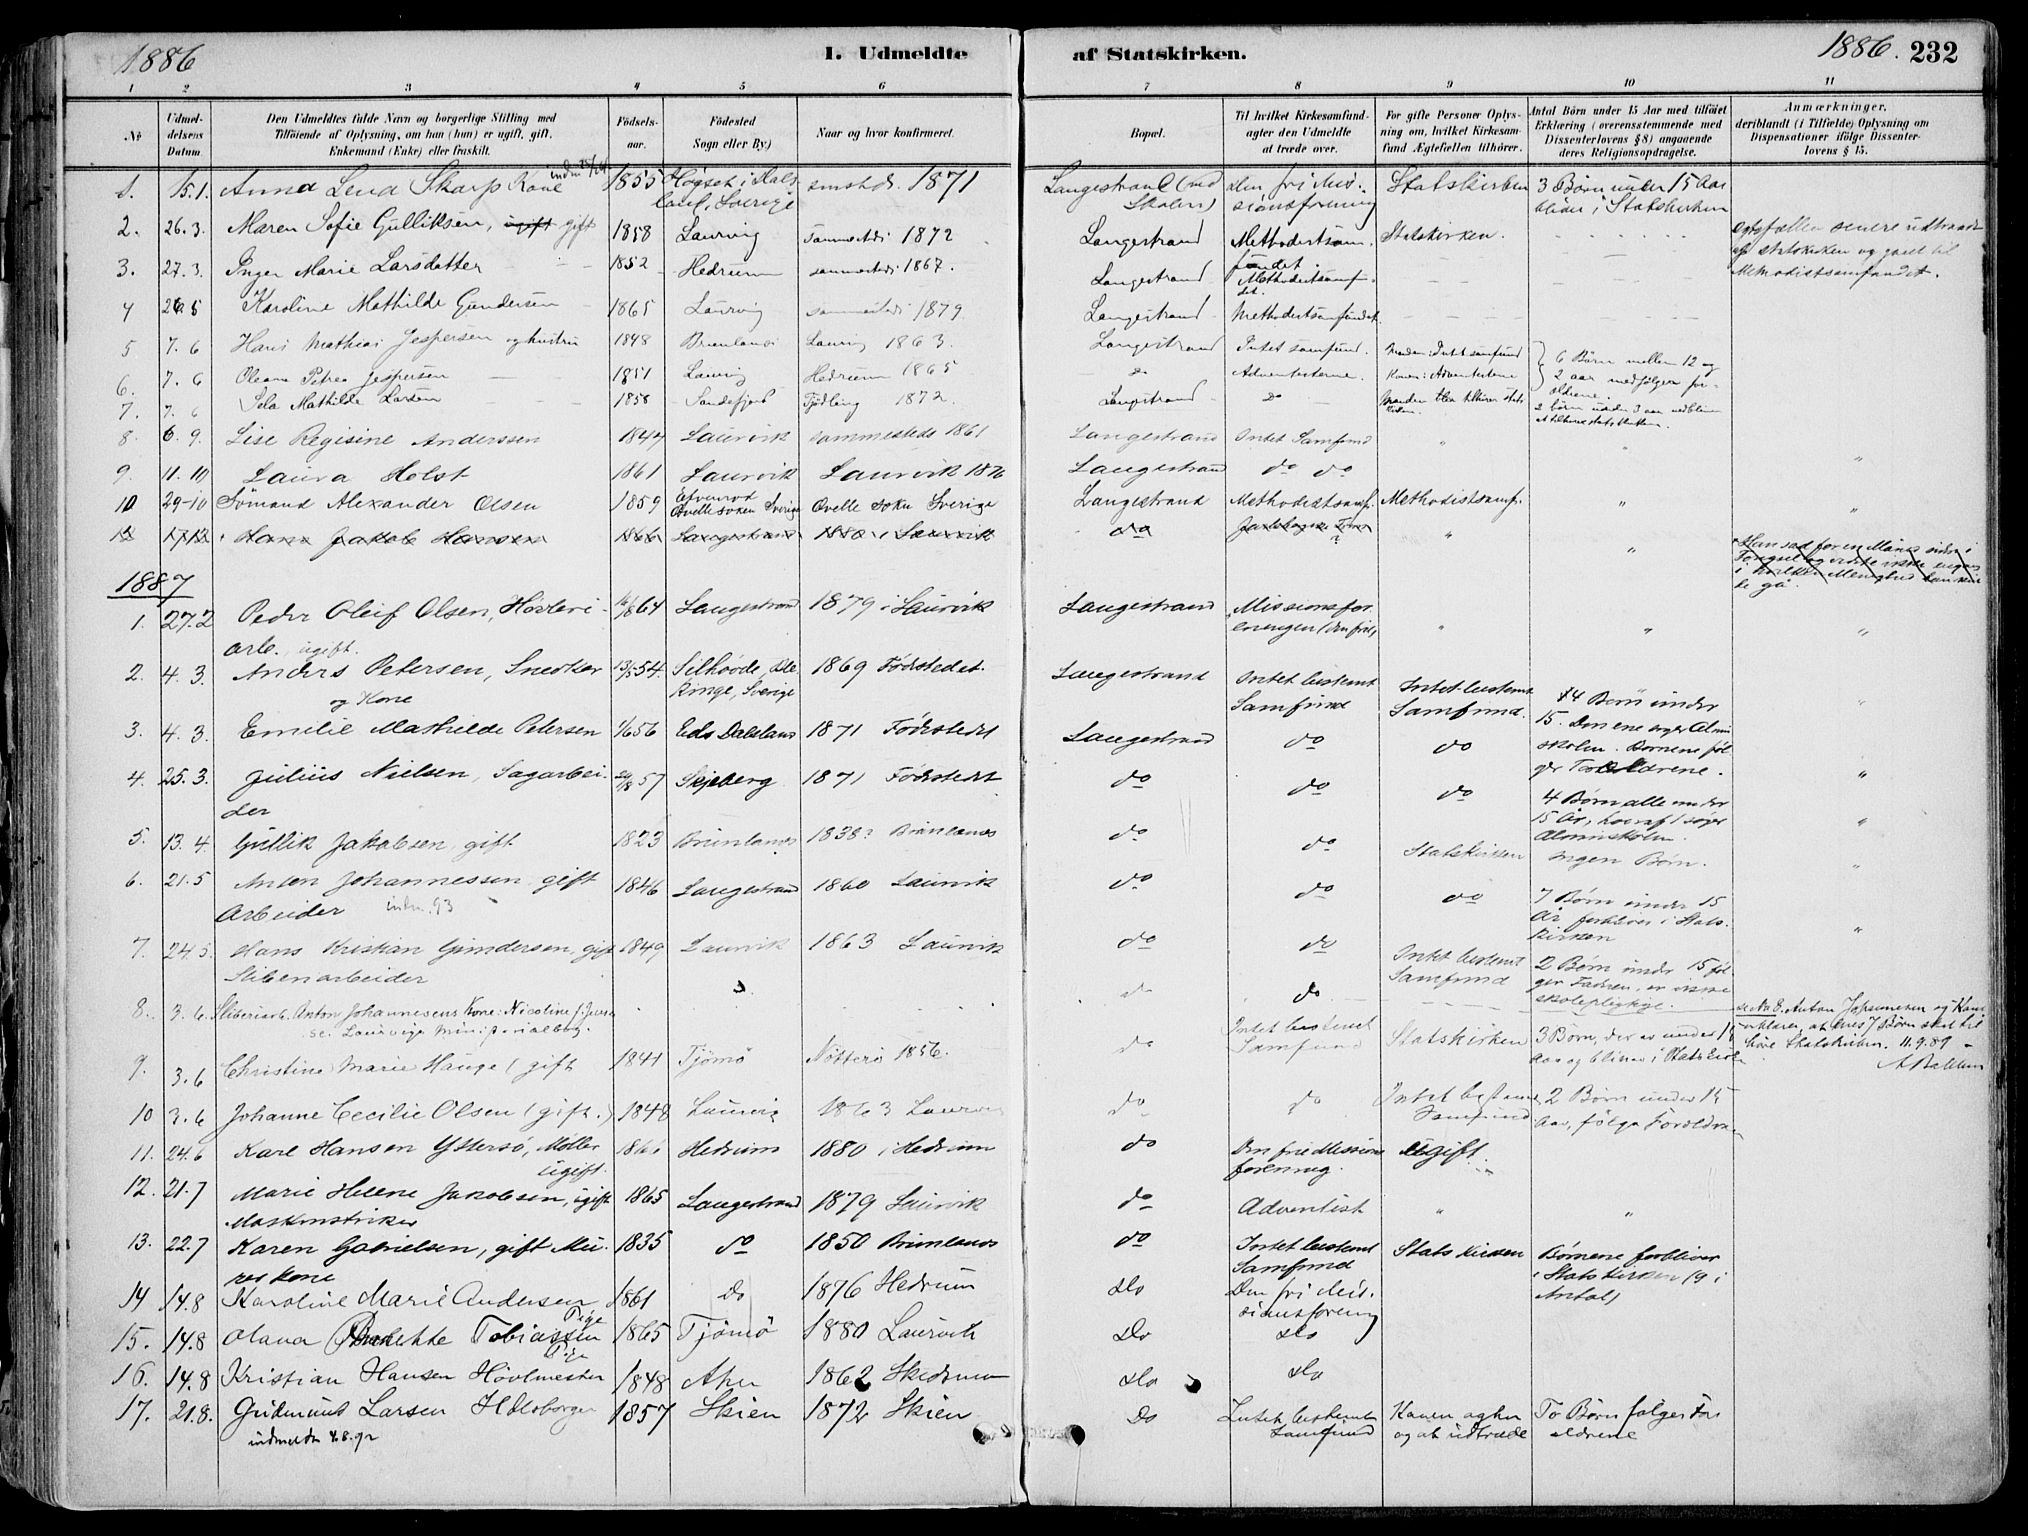 1886
I. Udmeldte af Statskirken.
1886. 232
1 2 3 4 5 6 7 8 9 10 11
No
Udmel-
delsens
Datum.
Den Udmeldtes fulde Navn og borgerlige Stilling med
Tilföiende af Oplysning, om han (hun) er ugift, gift,
Enkemand (Enke) eller fraskilt.
Födsels-
aar.
Födested
Sogn eller By.)
Naar og hvor konfirmeret.
Bopæl.
Til hvilket Kirkesamfund
agter den Udmeldte
at træde over.
For gifte Personer Oplys-
ning om, hvilket Kirkesam-
fund Ægtefællen tilhörer.
Antal Börn under 15 Aar med tilföiet
Erklæring (overensstemmende med
Dissenterlovens § 8) angaaende
deres Religionsopdragelse.
Anmærkninger,
deriblandt (i Tilfælde) Oplysning om
Dispensationer ifölge Dissenter-
lovens § 15.
1. 15.1. Anna Lena Skarp Kone 1855 Sverige 1871 Langestrand (ved Skolen) den fri Mis-
sionsforening Statskirken 3 Børn under 15 Aar
bliver i Statskirken
2. 26.3. Maren Sofie Gulliksen, ugift gift 1858 Laurvig sammesteds 1872 Langestrand Methodistsam-
fundet. Statskirken. Ægtefællen senere udtraadt
af statskirken og gaaet til
Methodistsamfundet.
3. 27.3. Inger Marie Larsdatter 1852 Hedrum sammesteds 1867. Langestrand Methodistsamfun-
det.
4 26.5 Karoline Mathilde Gundersen 1865 Laurvig sammesteds 1879. Langestrand Methodistsamfundet.
5 7.6 Hans Mathias Jespersen og hustru 1848 Brunlanæs Laurvig 1863. Langestrand Intet samfund. Manden: Intet samfund 6 Børn mellem 12 og
2 aar medfølger for-
ældrene.
6. 7.6 Oleana Petrea Jespersen 1851 Laurvig Hedrum 1865 do Adventisterne. Konen: Adventisterne
7. 7.6 Mathilde Larsen 1858 Sandefjord Tjødling 1872. Langestrand do Manden
2 børn under 3 aar
8. 6.9. Lise Regisine Anderssen 1844 Laurvik sammesteds 1861 Langestrand Intet Samfund "
9. 11.10 Laura Holst 1861 Laurvik Laurvik 1876 Langestrand do do
10 29-10 Sömand Alexander Olsen 1859 Sverige Sverige Langestrand Methodistsamf. Methodistsamf. "
17.12. Hans Jakob Hansen 1866 Langestrand 1880 i Laurvik do "
1887
1. 27.2 Peder Oleif Olsen, Høvleri-
arb., ugift. 64 Langestrand 1879 i Laurvik Langestrand Missionsfor-
eningen (den frie) " " "
2. 4.3. Anders Petersen, Snedker
og Kone 54. Ble-
kinge, Sverige 1869 Fødestedet. Langestrand Intet bestemt
Samfund Intet bestemt
Samfund. 4 Børn under
15. Den ene søger Almu-
skolen. Børnene føl-
ger Forældrene.
3. 4.3. Emilie Mathilde Petersen 56 Eds Dalsland 1871 Fødestedet Langestrand do do
4. 25.3. Julius Nielsen, Sagarbei-
der 57 Skjeberg 1871 Fødestedet do do do 4 Børn alle under
15 År, hvoraf 1 søger
Almuskolen.
5. 13.4. Gullik Jakobsen, gift 1823 Brunlanæs 1838? Brunlanæs do do Statskirken Ingen Børn.
6. 21.5 Anton Johannessen, gift
Arbeider indm. 93 1846 Langestrand 1860 Laurvik do do do 7 Børn under 15
År forbliver i Stats-
kirken
7. 24.5. Hans Kristian Gundersen, gift
Sliberiarbeider 1849 Laurvik 1863 Laurvik do do Intet bestemt
Samfund 2 Børn under 15 føl-
ger Faderen, er ikke
skolepligtige.
8. 3.6. Sliberiarb. Anton Johannesens Kone: Nicoline
se Laurvigs Ministerialbog. do do
erklærer, at deres 7 Børn skal til-
høre Statskirken. 11.9.87
9. 3.6 Christine Marie Hauge (gift 1841 Tjömö Nötterö 1856. do Intet bestemt
Samfund Statskirken 3 Børn, der er under 15
Aar og bliver i Statskirken
10 3.6 Johanne Cecilie Olsen (gift.) 1848 Laurvig 1863 Laurvig do do Intet bestemt
Samfund 2 Børn under 15
Aar, følger Forældrene
11. 24.6 Karl Hansen Yttersö, Møller
ugift. 186 Hedrum 1880 i Hedrum do Den frie Missions-
forening. Ugift.
12. 21.7 Marie Helene Jakobsen, ugift
Maskinstrikker 1865 Langestrand 1879 Laurvik do Adventist " "
13. 22.7 Karen Gabrielsen, gift Mu-
rerkone 1835 do 1850 Brunlanæs do Intet bestemt
Samfund Statskirken Børnene forbliver
i Statskirken (9 i
Antal)
14 14.8 Karoline Marie Andersen
Pige 1861 do 1876 Hedrum do Den fri Mis-
sionsforening
15. 14.8 Olava Tobiassen
Pige 1865 Tjömö 1880 Laurvik do do
16. 14.8 Kristian Hansen Hövlmester 1848 Aker 1862 Skedsmo do do
17. 21.8. Gudmund Larsen
indmeldt 4.8.92 1857 Skien 1872 Skien Do Intet bestemt
Samfund Konen agter
og at udtræde To Børn følger For-
ældrene